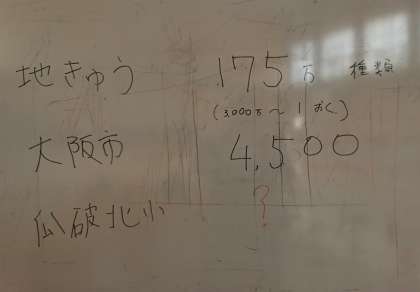 地きゅう 175万 種類
(3,000万～1おく)
大阪市 4,500
瓜破北小 ?